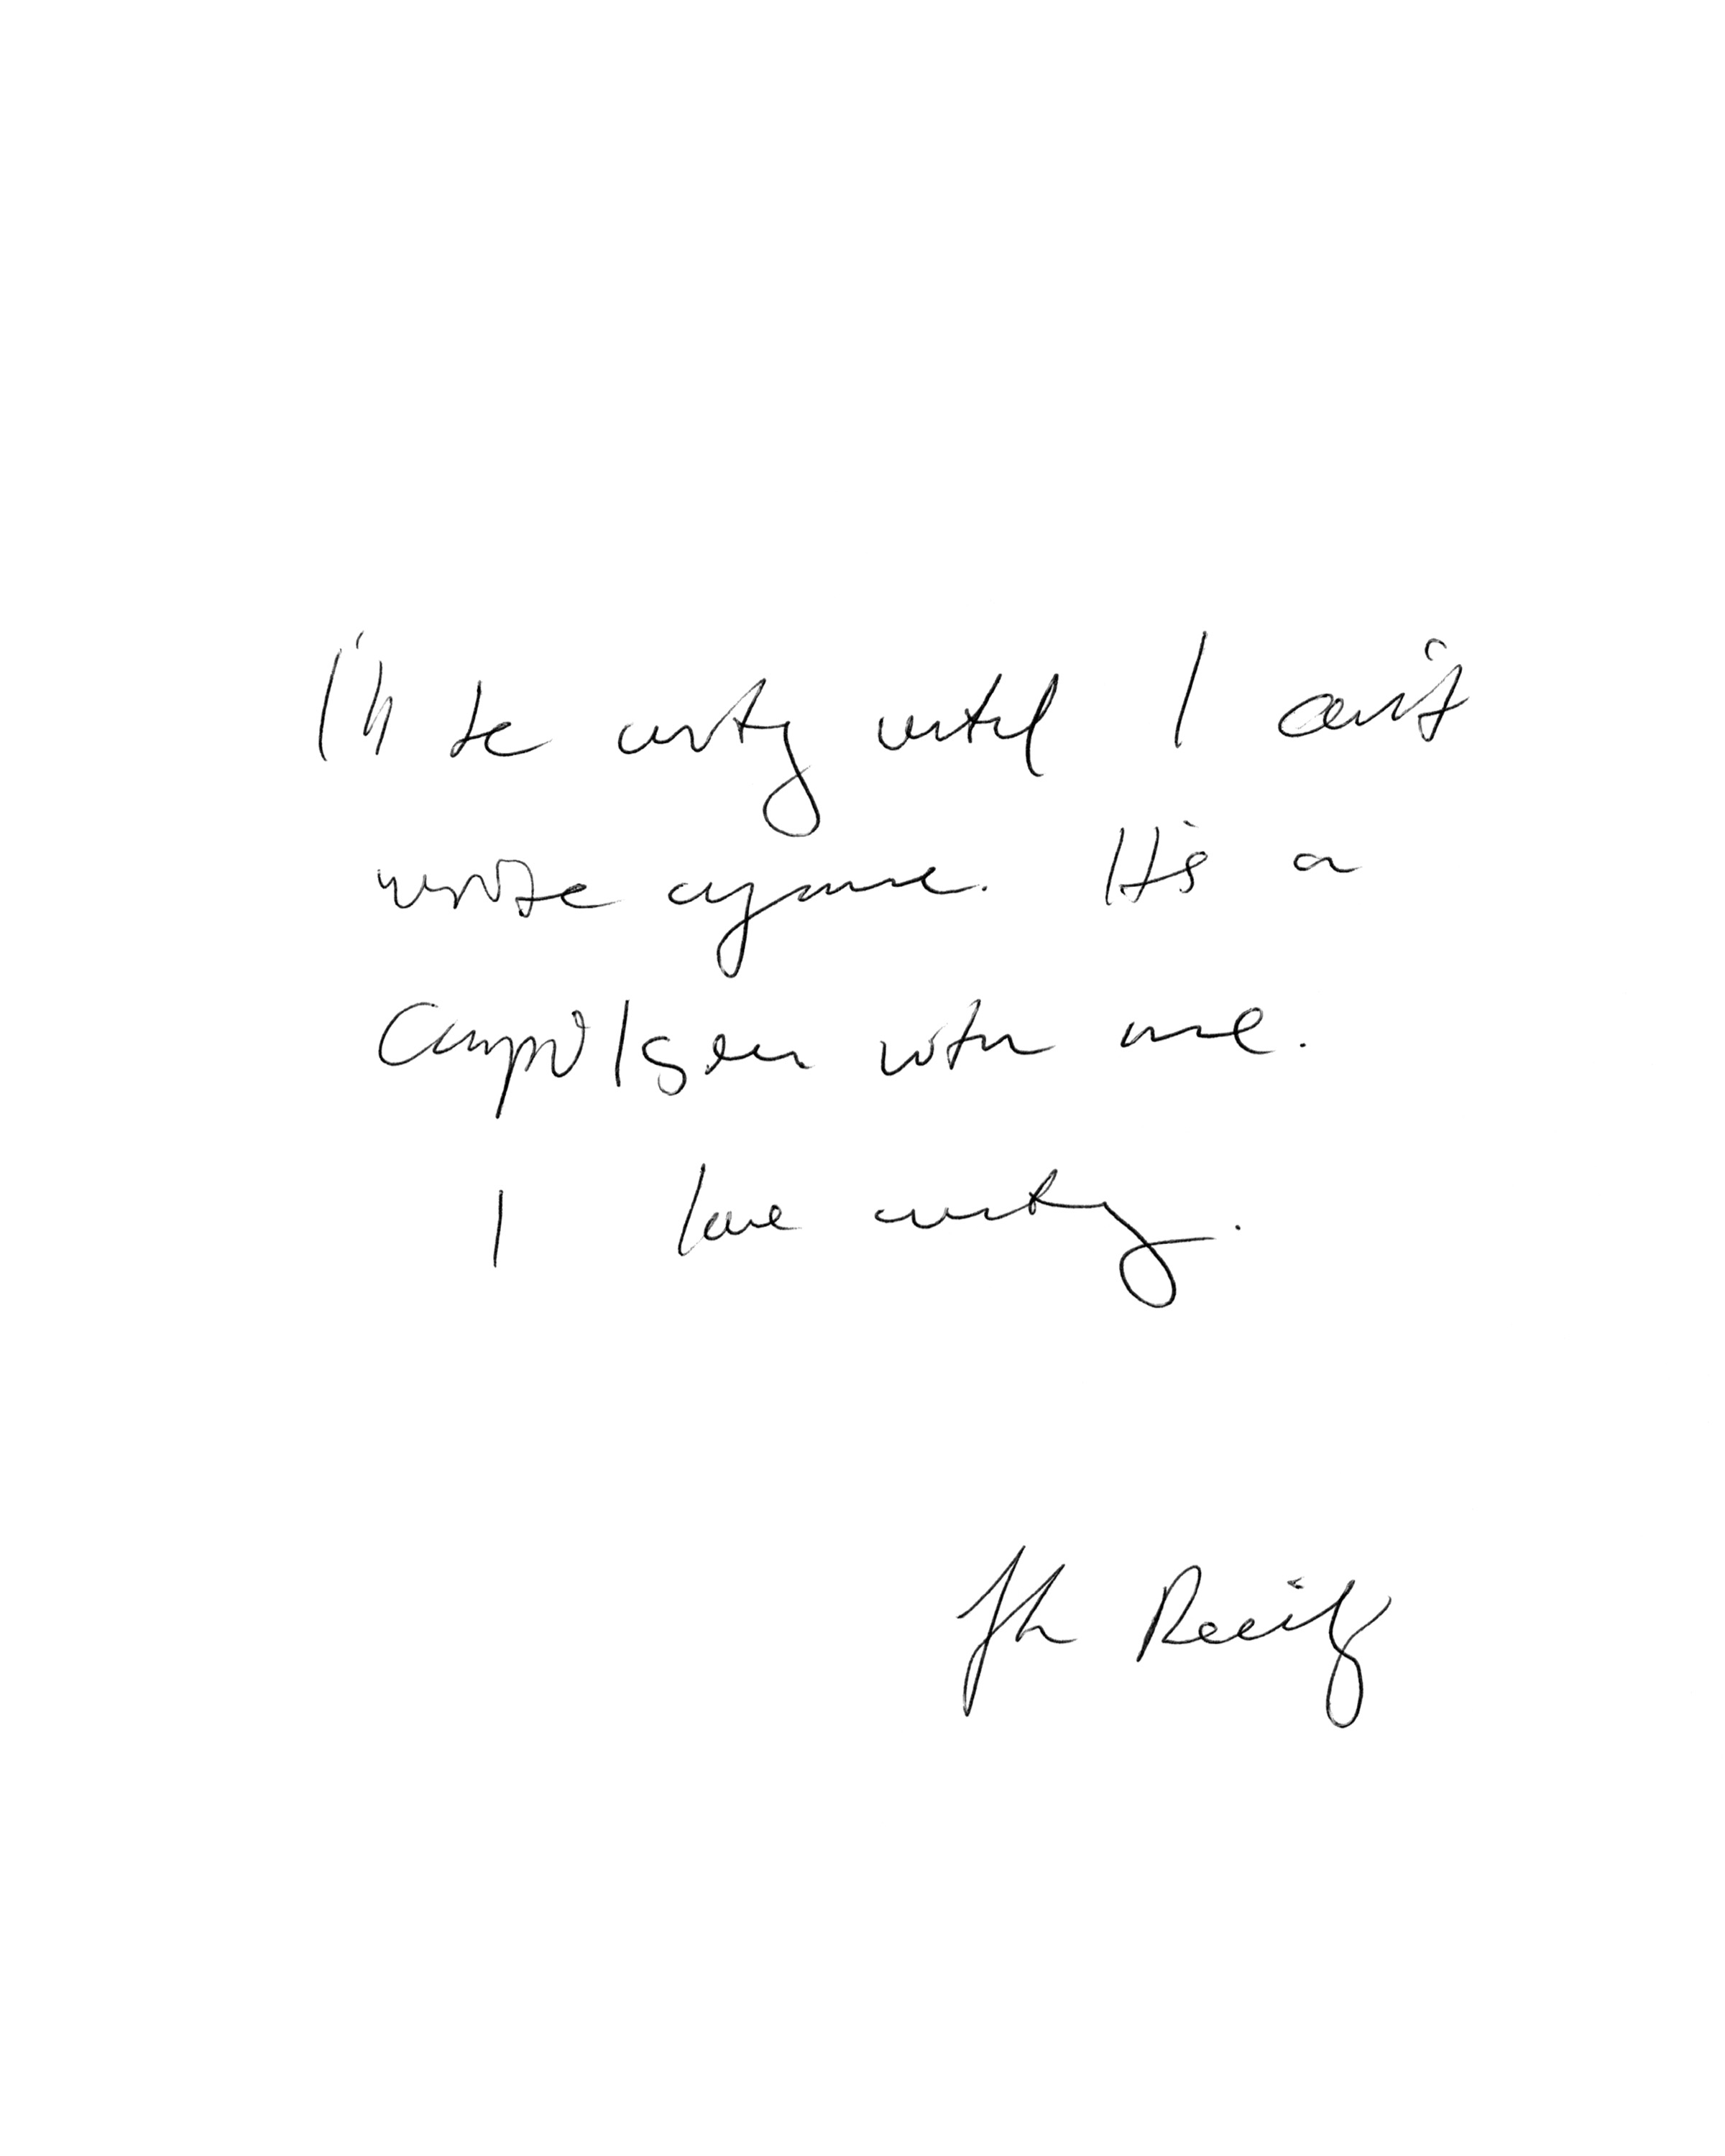 I'll be writing until I can't
write anymore. It's a
compulsion with me.
I love writing.
John Rechy